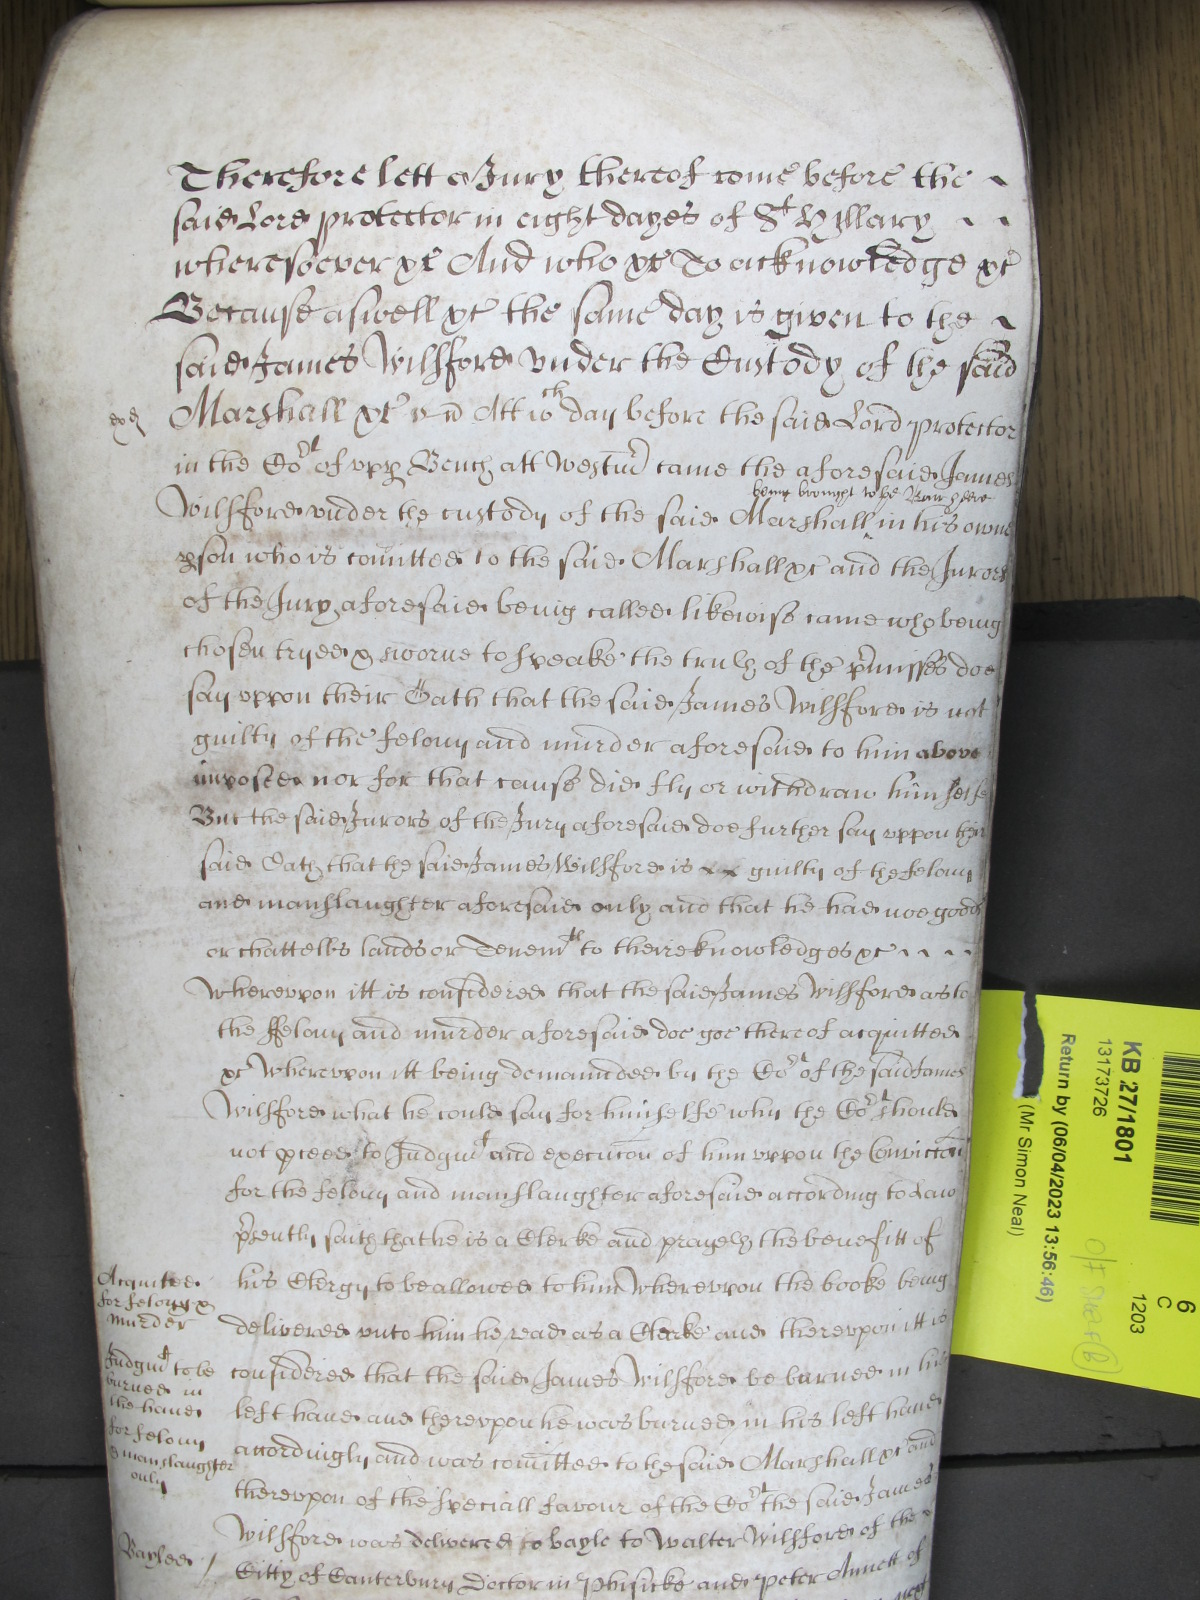 Therefore lett a Jury thereof come before the
said Lord protector in eight dayes of St Hillary
wheresoever &c And who &c To acknowledge &c
Because aswell &c the same day is given to the
said James Wilsford vnder the Custody of the said
Marshall &c Att wch day before the said Lord protector
in the Cort of vpp Bench att Westmr came the aforesaid James
being brought to the Barr here
Wilsford vnder the custody of the said Marshall in his owne
pson who is comitted to the said Marshall &c and the Jurors
of the Jury aforesaid being called likewise came who being
chosen tryed & sworne to speake the truth of the pmisses doe
say vppon their Oath that the said James Wilsford is not
guilty of the felony and murder aforesaid to him above
imposed nor for that cause did fly or withdraw himselfe
But the said Jurors of the Jury aforesaid doe further say vppon their
said Oath that the said James Wilsford is guilty of the felony
and manslaughter aforesaid only and that he had noe goods
or chattells lands or Tenemts to theire knowledges &c
Wherevpon itt is considered that the said James Wilsford as to
the ffelony and murder aforesaid doe goe thereof acquitted
&c Wherevpon itt being demaunded by the Cort of the said James
Wilsford what he could say for himselfe why the Cort should
not pceed to Judgmt and execucon of him vppon the Conviccon
for the felony and manslaughter aforesaid according to Law
psently saith that he is a Clerke and prayeth the benefitt of
his Clergy to be allowed to him Wherevpon the booke being
delivered vnto him he read as a Clerke and therevpon itt is
considered that the said James Wilsford be burned in his
left hand and therevpon he was burned in his left hand
accordingly and was comitted to the said Marshall &c and
therevpon of the speciall favour of the Cort the said James
Wilsford was delivered to bayle to Walter Wilsford of the
Citty of Canterbury Doctor in Phisicke and Peter Annett of
Acquitted
for felony &
murder
Judgmt to be
burned in
the hand
for felony
& manslaughter
only
Bayled
KB 27/1801
13173726
Return by (06/04/2023 13:56:46)
(Mr Simon Neal)
6
C
1203